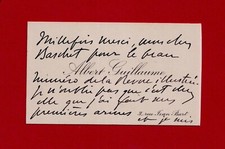 Mille fois merci, mon cher
Baschet pour le beau
Albert Guillaume
numéro de la Revue illustrée
je n'oublie pas que c'est chez
elle que j'ai fait mes
premières armes
2, rue Jean-Bart
et je suis